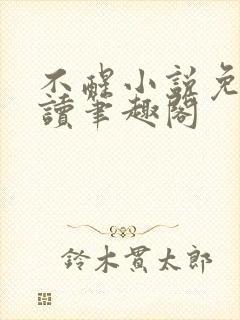 不醒小說免
讀筆趣閣
鈴木貫太郎